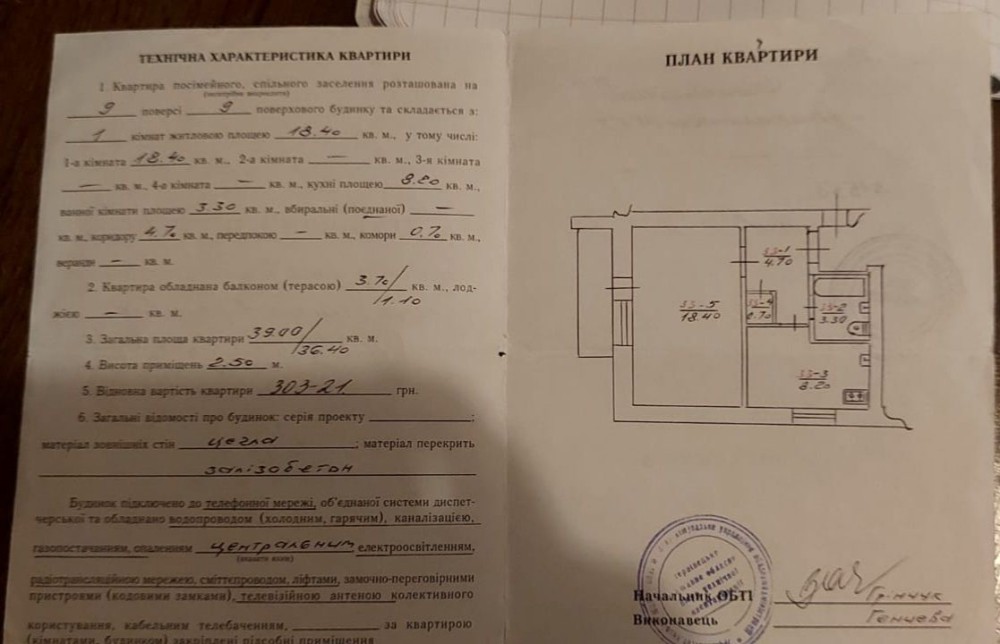 ТЕХНІЧНА ХАРАКТЕРИСТИКА КВАРТИРИ
1. Квартира посімейного, спільного заселення розташована на
(непотрібне закреслити)
9 поверсі 9 поверхового будинку та складається з:
1 кімнат житловою площею 18.40 кв. м., у тому числі:
1-а кімната 18.40 кв. м., 2-а кімната — кв. м., 3-я кімната
— кв. м., 4-а кімната — кв. м., кухні площею 8.20 кв. м.,
ванної кімнати площею 3.30 кв. м., вбиральні (поєднаної) —
кв. м., коридору 4.70 кв. м., передпокою — кв. м., комори 0.70 кв. м.,
веранди — кв. м.
2. Квартира обладнана балконом (терасою) 3.70/1.10 кв. м., лод-
жією — кв. м.
3. Загальна площа квартири 39.00/36.40 кв. м.
4. Висота приміщень 2.50 м.
5. Відновна вартість квартири 303-21 грн.
6. Загальні відомості про будинок: серія проекту ;
матеріал зовнішніх стін цегла ; матеріал перекрить
залізобетон
Будинок підключено до телефонної мережі, об'єднаної системи диспет-
черської та обладнано водопроводом (холодним, гарячим), каналізацією,
газопостачанням, опаленням центральним електроосвітленням,
(вказати яким)
радіотрансляційною мережею, сміттєпроводом, ліфтами, замочно-переговірними
пристроями (кодовими замками), телевізійною антеною колективного
користування, кабельним телебаченням, за квартирою
(кімнатами, будинком) закріплені підсобні приміщення
ПЛАН КВАРТИРИ
33-1
4.70
33-5
18.40
33-4
0.70
33-2
3.30
33-3
8.20
Начальник ОБТІ Грінчук
Виконавець